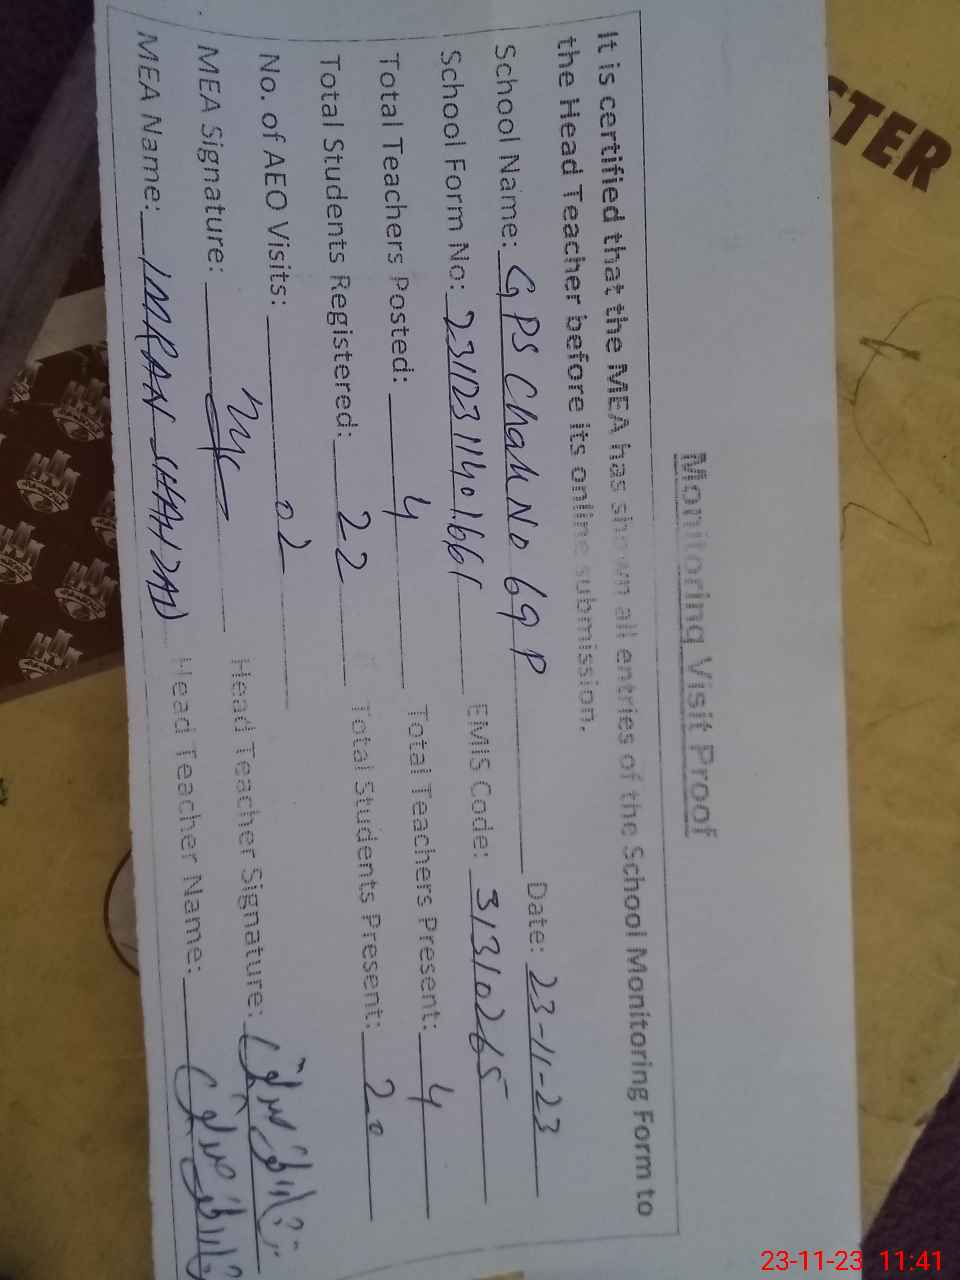 STER
Monitoring Visit Proof
It is certified that the MEA has shown all entries of the School Monitoring Form to
the Head Teacher before its online submission.
School Name: GPS Chak No 69 P Date: 23-11-23
School Form No: EMIS Code: 31310265
Total Teachers Posted: 4 Total Teachers Present: 4
Total Students Registered: 22 Total Students Present: 20
No. of AEO Visits: 02
MEA Signature: Head Teacher Signature:
MEA Name: IMRAN SHAHZAD Head Teacher Name:
23-11-23 11:41